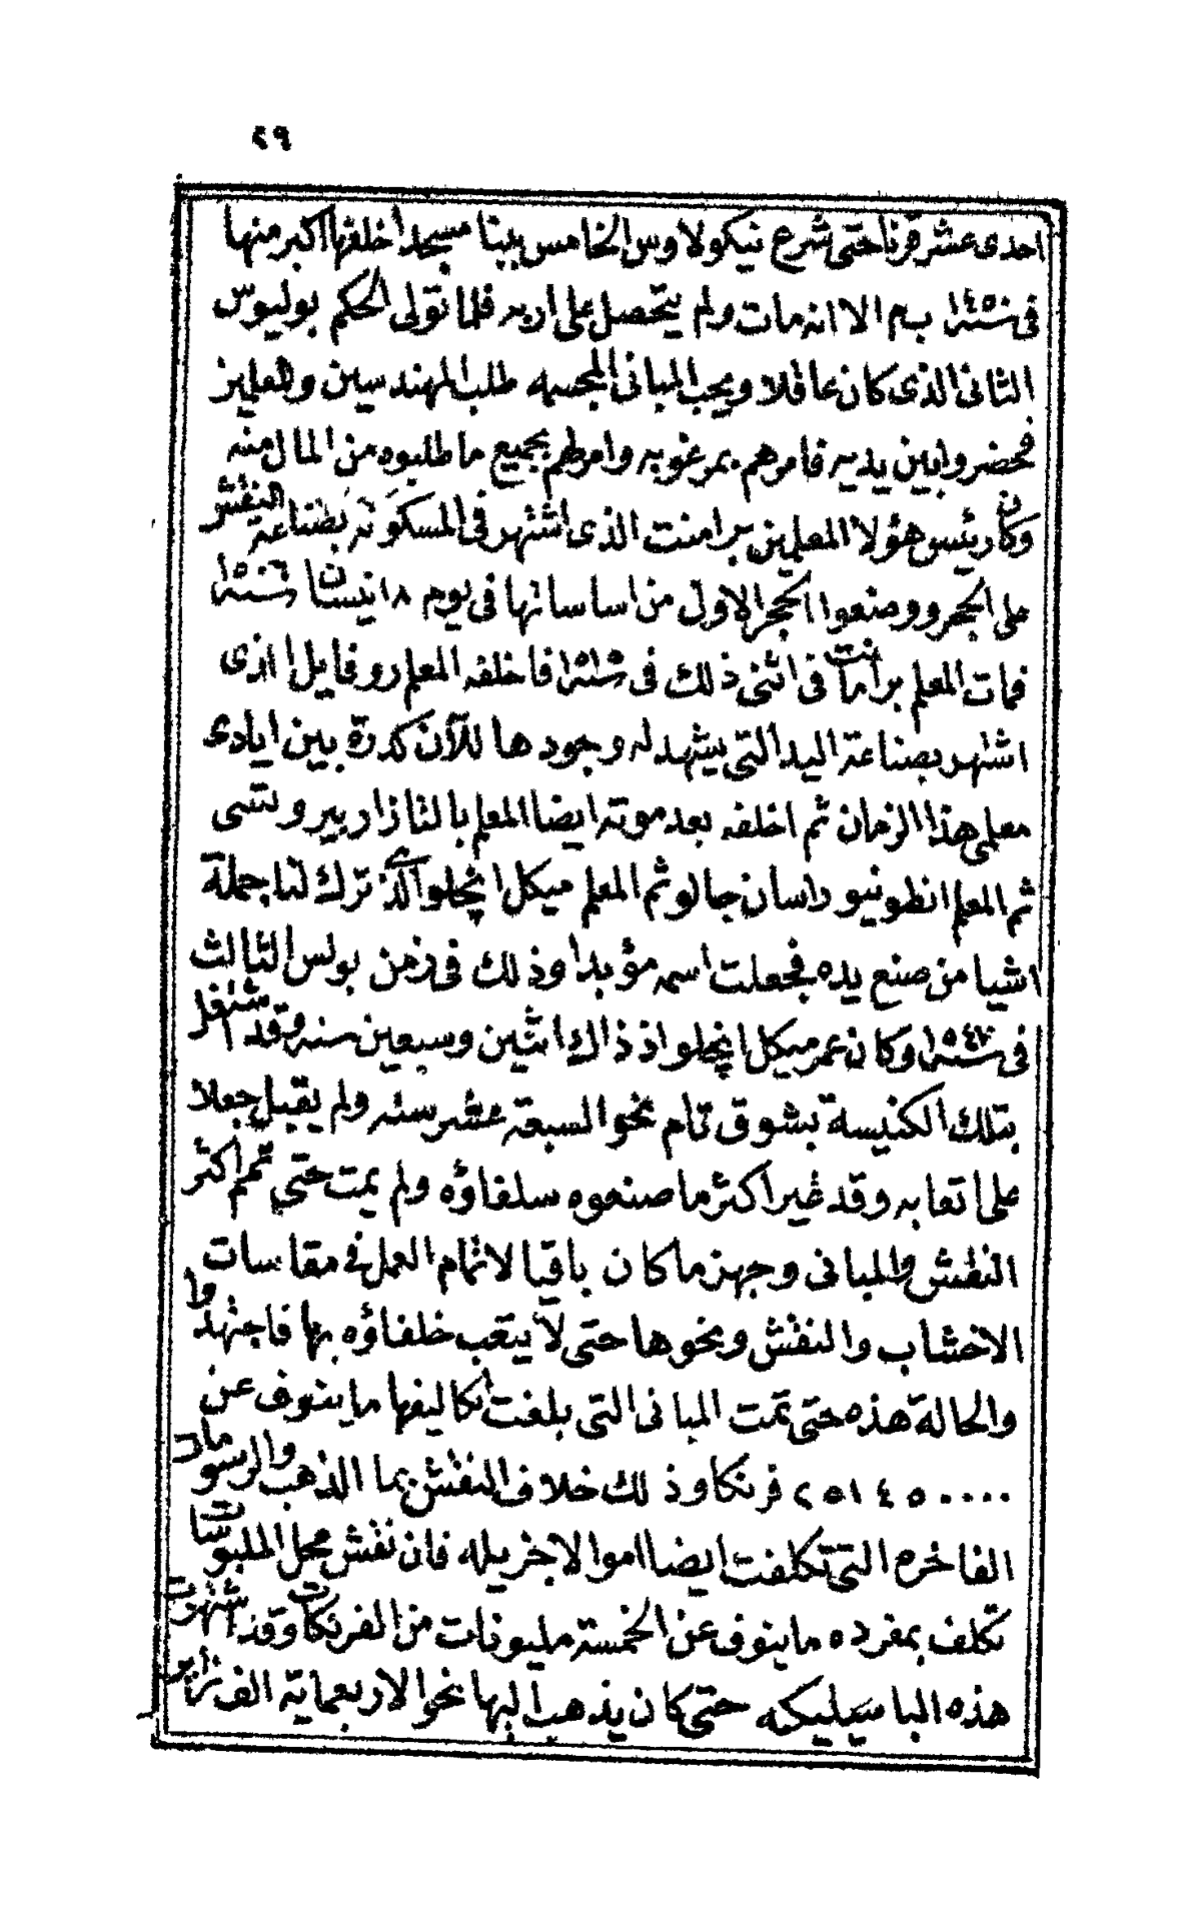 ٢٩
احدى عشر قرنا حتى شرع نيكولاوس الخامس ببنا مسجدا خلفها اكبر منها
فى سنة ١٤٥٠ ب م الا انه مات ولم يتحصل على اربه فلما تولى الحكم بوليوس
الثانى الذى كان عاقلا ويحب المبانى المجسمه طلب المهندسين والمعلمين
فحضروا بين يديه فامرهم بمرغوبه وامر لهم بجميع ما طلبوه من المال منه
وكان رئيس هؤلا المعلمين برامنت الذى اشتهر فى المسكونه بصناعة النقش
على الحجر ووضعوا الحجر الاول من اساساتها فى يوم ١٨ نيسان سنة ١٥٠٦
فمات المعلم برامنت فى اثنى ذلك فى سنة ١٥١٥ فاخلفه المعلم روفايل الذى
اشتهر بصناعة اليد التى يشهد له وجودها للآن كدرة بين ايادى
معلمى هذا الزمان ثم اخلفه بعد موته ايضا المعلم بالثازار بيروتسى
ثم المعلم انطونيو داسان جالو ثم المعلم ميكل انجلو الذى ترك لنا جملة
اشيا من صنع يده فجعلت اسمه مؤبدا وذلك فى زمن بولس الثالث
فى سنة ١٥٤٧ وكان عمر ميكل انجلو اذ ذاك اثنين وسبعين سنه وقد اشتغل
بتلك الكنيسة بشوق تام نحو السبعة عشر سنه ولم يقبل جعلا
على اتعابه وقد غير اكثر ما صنعوه سلفاؤه ولم يمت حتى تمم اكثر
النقش والمبانى وجهز ما كان باقيا لاتمام العمل فى مقاسات
الاخشاب والنقش ونحوها حتى لا يتعب خلفاؤه بها فاجتهدوا
والحالة هذه حتى تمت المبانى التى بلغت تكاليفها ما ينوف عن
٢٥١٤٥٠٠٠٠ فرنكا وذلك خلاف النقش بما الذهب والرسومات
الفاخره التى تكلفت ايضا اموالا جزيله فان نقش محل الملبوسات
تكلف بمفرده ما ينوف عن الخمسة مليونات من الفرنكات وقد اشتهرت
هذه الباسيليكه حتى كان يذهب اليها نحو الاربعماية الف زائر